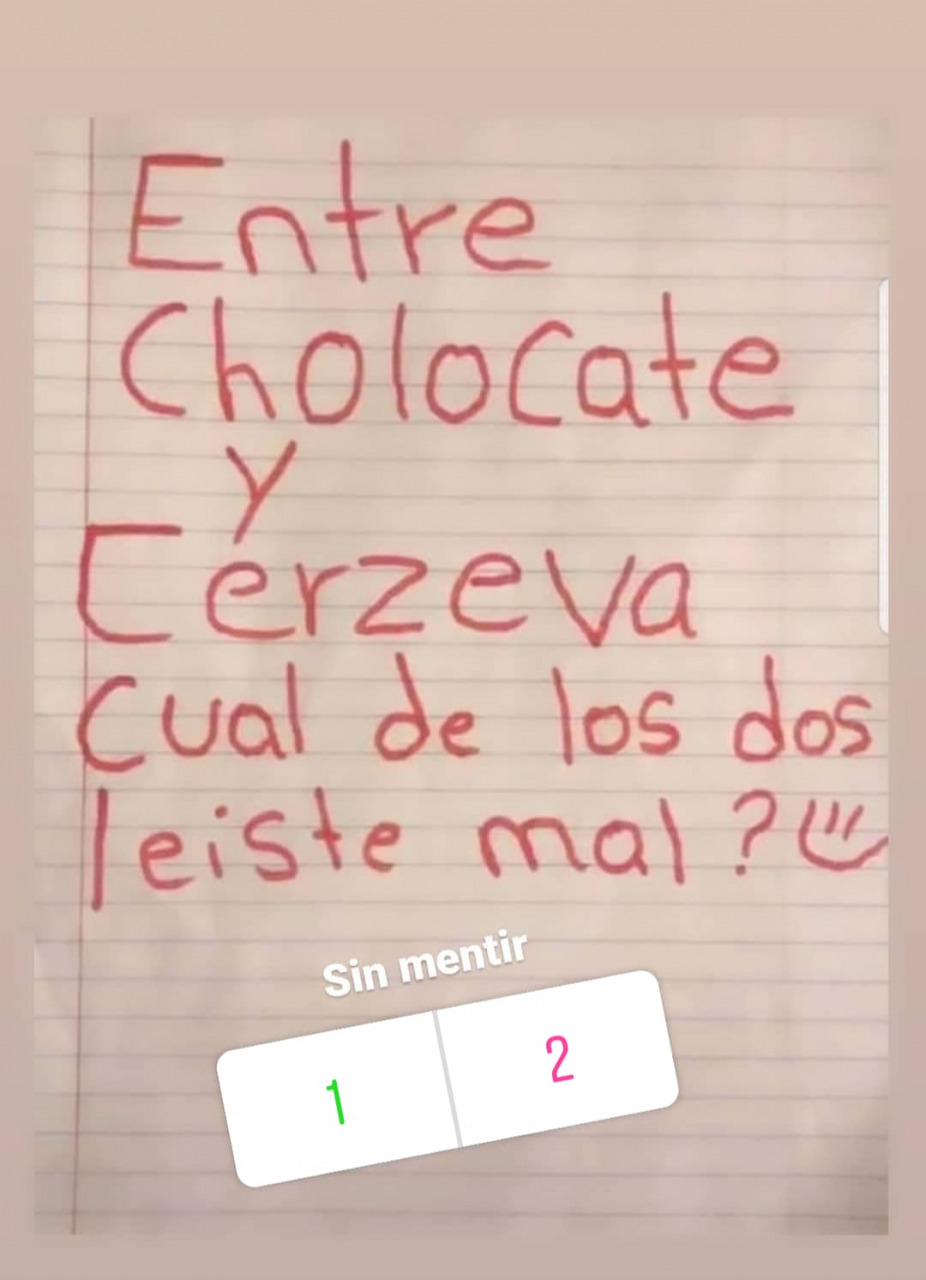 Entre
Cholocate
y
Cerzeva
Cual de los dos
leiste mal ?
Sin mentir
1 2